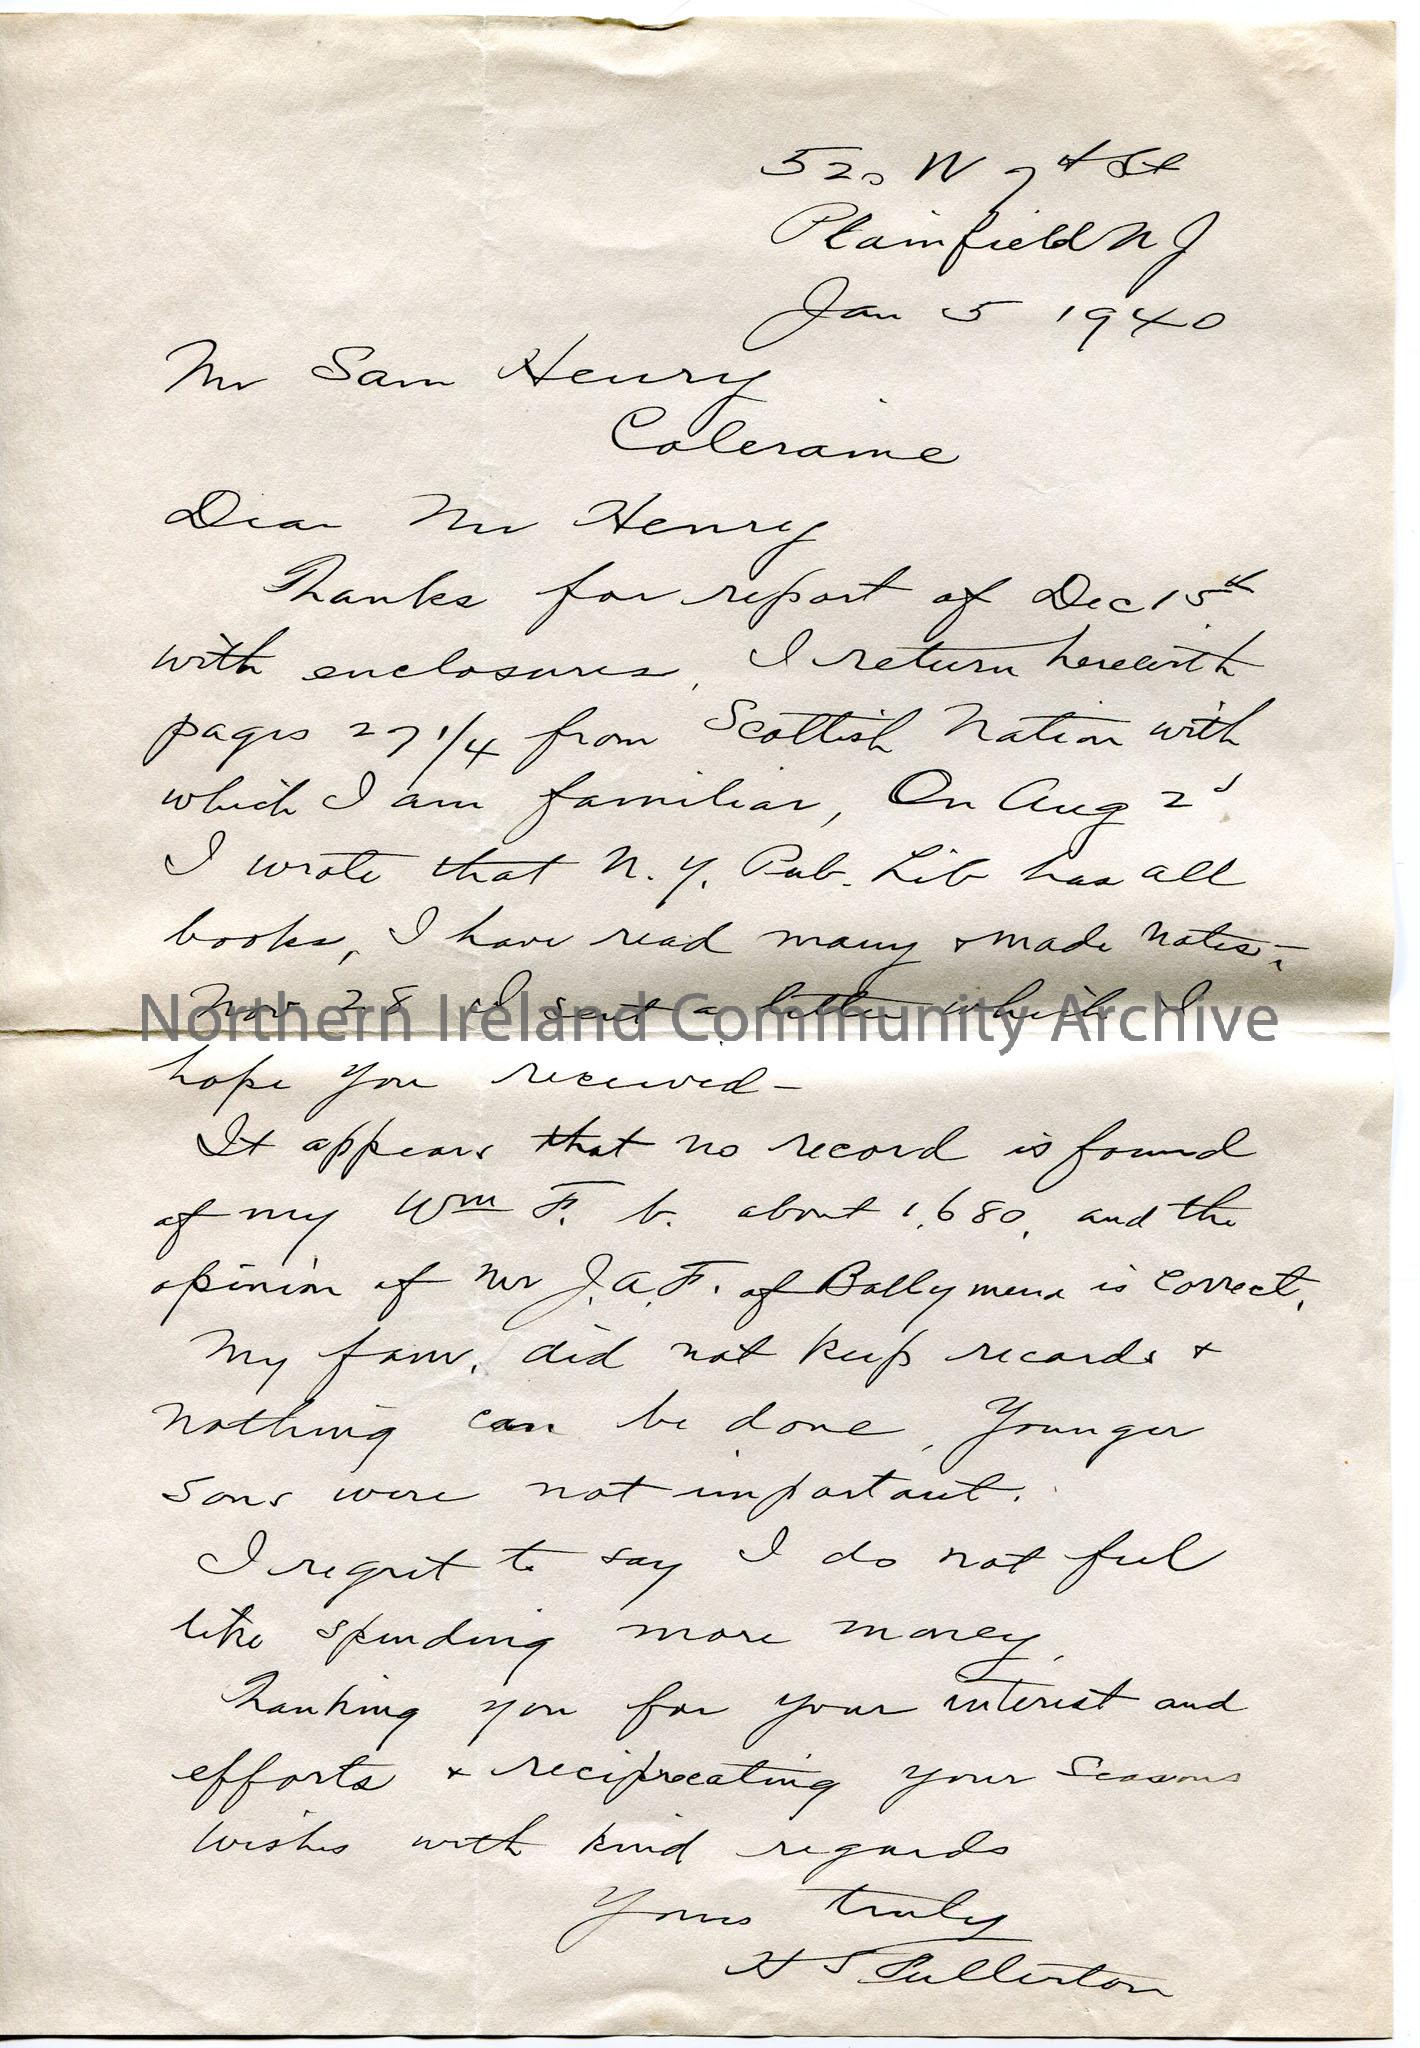 520 W 7th St
Plainfield N J
Jan 5 1940
Mr Sam Henry
Coleraine
Dear Mr Henry
Thanks for report of Dec 15th
with enclosures. I return herewith
pages 271/4 from Scottish Nation with
which I am familiar, On Aug 2d
I wrote that N. Y. Pub. Lib has all
books, I have read many & made notes-
Nov 28 I sent a letter which I
Northern Ireland Community Archive
hope you received-
It appears that no record is found
of my Wm F. b. about 1680, and the
opinion of Mr J.A.F. of Ballymena is correct.
My fam. did not keep records &
nothing can be done, Younger
sons were not important.
I regret to say I do not feel
like spending more money.
Thanking you for your interest and
efforts & reciprocating your Seasons
wishes with kind regards
Yours truly
H S Fullerton